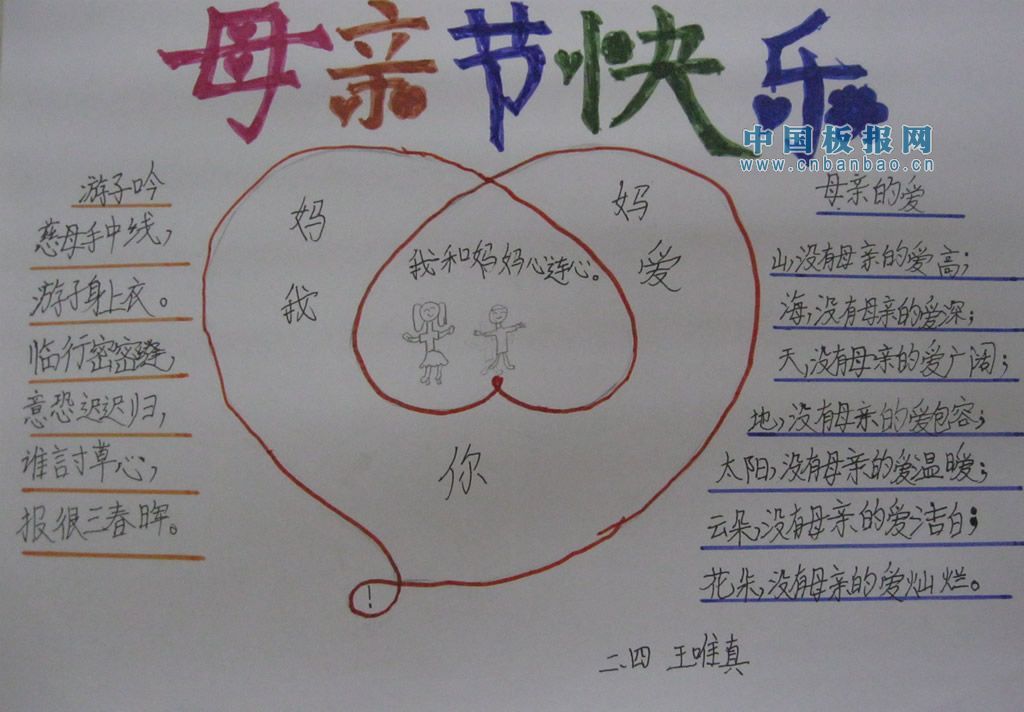 母亲节快乐
中国板报网
www.cnbanbao.cn
游子吟
慈母手中线，
游子身上衣。
临行密密缝，
意恐迟迟归，
谁討草心，
报很三春晖。
妈 妈
我 爱
你
！
我和妈妈心连心。
母亲的爱
山，没有母亲的爱高；
海，没有母亲的爱深；
天，没有母亲的爱广阔；
地，没有母亲的爱包容；
太阳，没有母亲的爱温暖；
云朵，没有母亲的爱洁白；
花朵，没有母亲的爱灿烂。
二、四 王唯真